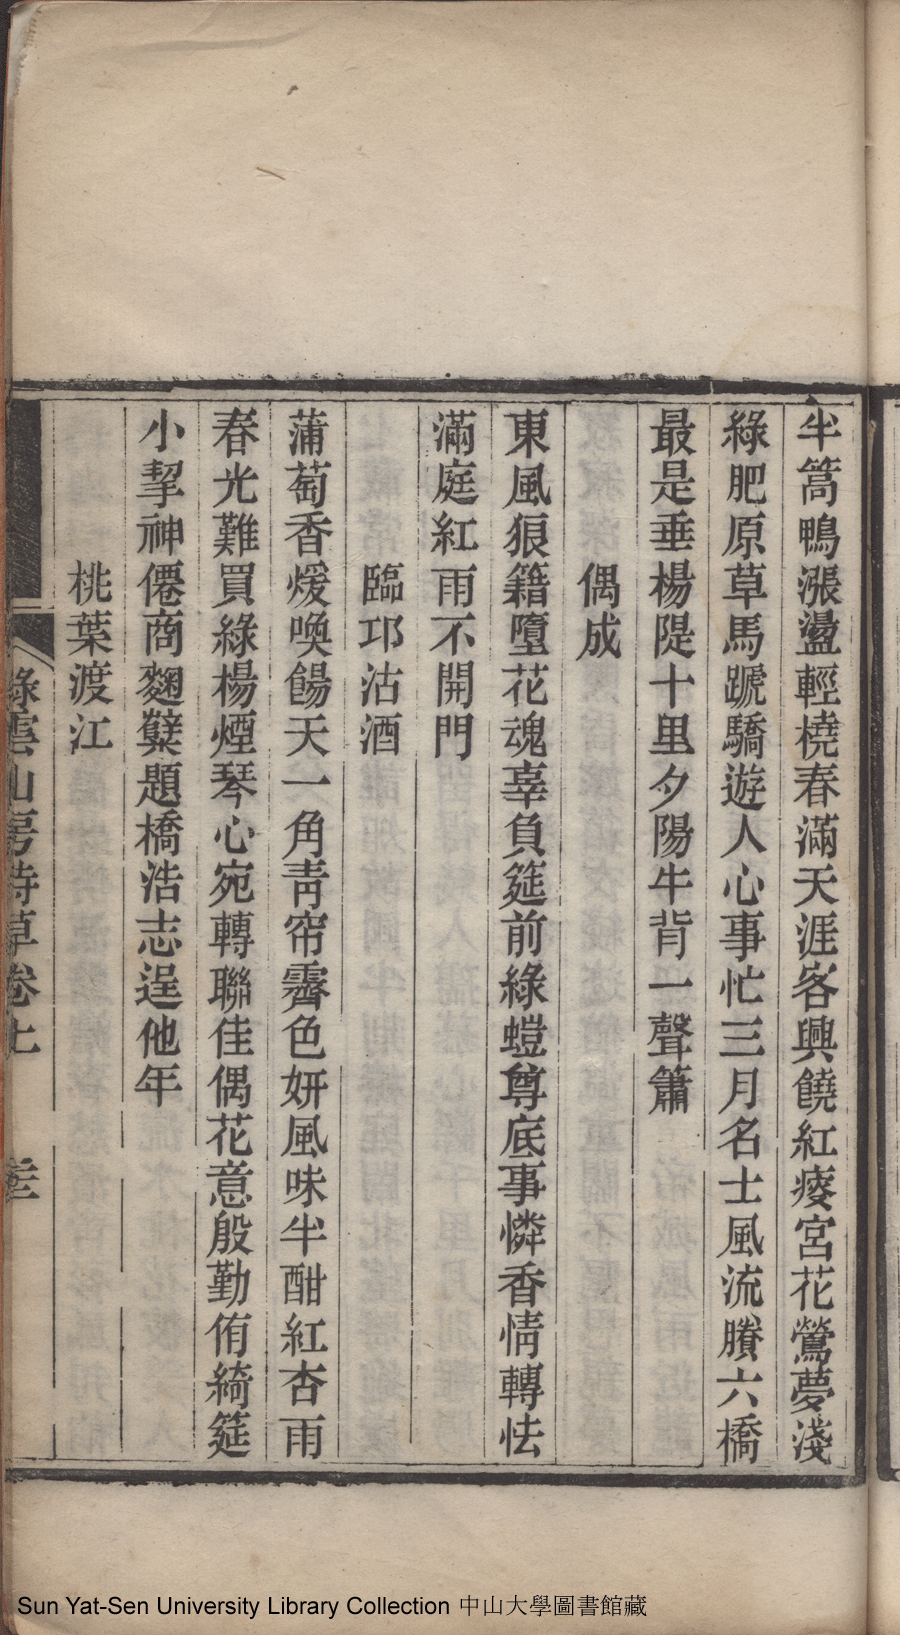 半篙鴨漲盪輕橈春滿天涯客興饒紅瘦宮花鶯夢淺
綠肥原草馬蹏驕遊人心事忙三月名士風流賸六橋
最是垂楊隄十里夕陽牛背一聲簫
偶成
東風狼籍墮花魂辜負筵前綠螘尊底事憐香情轉怯
滿庭紅雨不開門
臨邛沽酒
蒲萄香煖喚餳天一角靑帘霽色妍風味半酣紅杏雨
春光難買綠楊煙琴心宛轉聯佳偶花意殷勤侑綺筵
小挈神僊商麴糵題橋浩志逞他年
桃葉渡江
綠雲山房詩草卷上
Sun Yat-Sen University Library Collection 中山大學圖書館藏